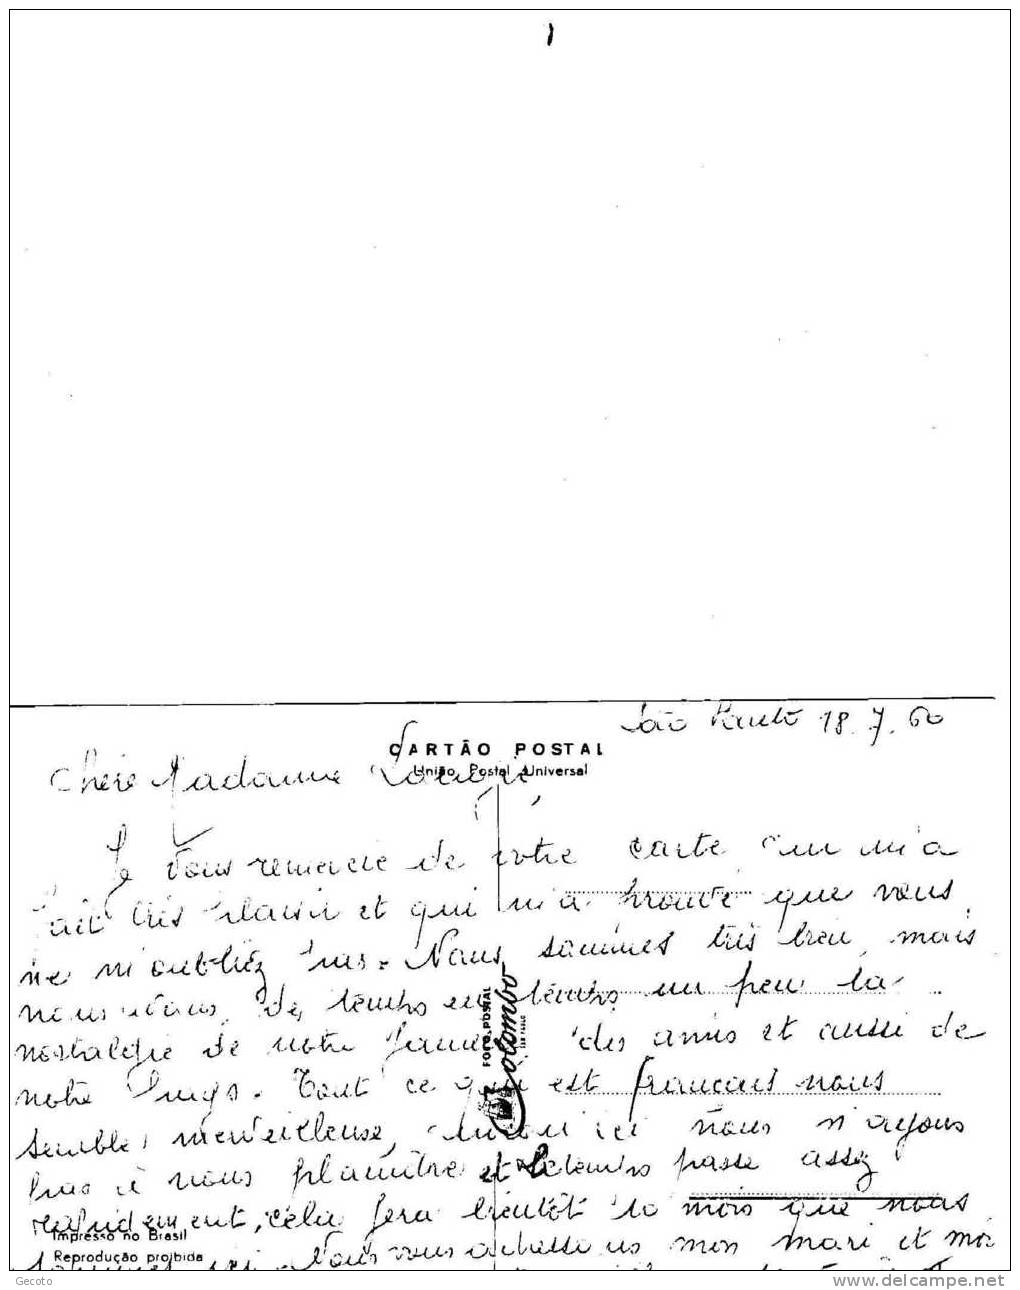 São Paulo 18.7.60
CARTÃO POSTAL
União Postal Universal
Chère Madame
Je vous remercie de votre carte qui m'a
fait très plaisir et qui m'a prouvé que vous
ne m'oubliez pas. Nous sommes très bien, mais
nous avons de temps en temps un peu la
nostalgie de notre famille des amis et aussi de
notre pays. Tout ce qui est français nous
semble merveilleuse, ici nous n'ayons
pas à nous plaindre et le temps passe assez
rapidement, cela fera bientôt 10 mois que nous
sommes ici. Nous vous adressons mon mari et moi
FOTO POSTAL
Colombo
SÃO PAULO
Impresso no Brasil
Reprodução proibida
Gecoto
www.delcampe.net